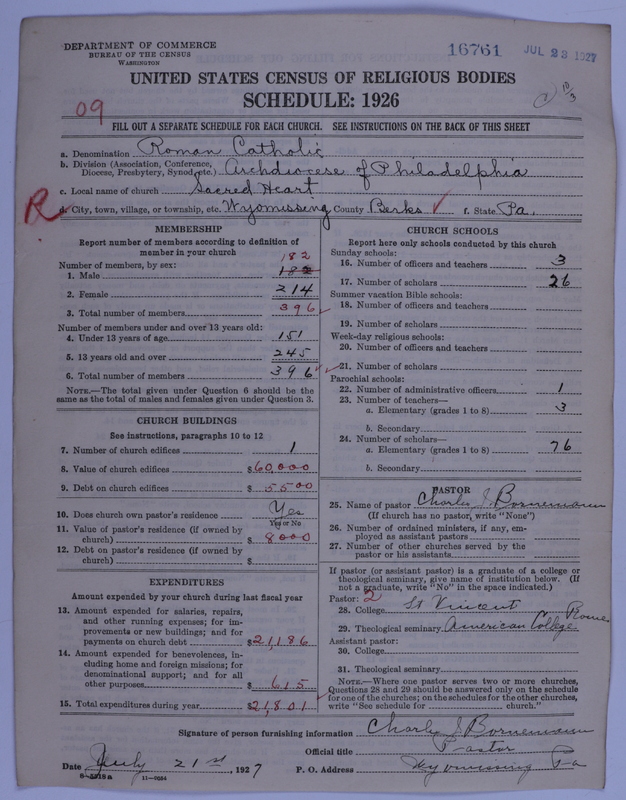 DEPARTMENT OF COMMERCE
BUREAU OF THE CENSUS
WASHINGTON
16761 JUL 23 1927
UNITED STATES CENSUS OF RELIGIOUS BODIES
SCHEDULE: 1926
10/3
09
FILL OUT A SEPARATE SCHEDULE FOR EACH CHURCH. SEE INSTRUCTIONS ON THE BACK OF THIS SHEET
a. Denomination Roman Catholic
b. Division (Association, Conference, Diocese, Presbytery, Synod, etc.) Archdiocese of Philadelphia
c. Local name of church Sacred Heart
R
d. City, town, village, or township, etc. Wyomissing County Berks f. State Pa.
MEMBERSHIP
Report number of members according to definition of
member in your church
Number of members, by sex: 182
1. Male 182
2. Female 214
3. Total number of members 396
Number of members under and over 13 years old:
4. Under 13 years of age 151
5. 13 years old and over 245
6. Total number of members 396
NOTE.—The total given under Question 6 should be the
same as the total of males and females given under Question 3.
CHURCH BUILDINGS
See instructions, paragraphs 10 to 12
7. Number of church edifices 1
8. Value of church edifices $60,000
9. Debt on church edifices $5500
10. Does church own pastor's residence Yes
Yes or No
11. Value of pastor's residence (if owned by
church) $8000
12. Debt on pastor's residence (if owned by
church) $
EXPENDITURES
Amount expended by your church during last fiscal year
13. Amount expended for salaries, repairs,
and other running expenses; for im-
provements or new buildings; and for
payments on church debt $21,186
14. Amount expended for benevolences, in-
cluding home and foreign missions; for
denominational support; and for all
other purposes $615
15. Total expenditures during year $21,801
CHURCH SCHOOLS
Report here only schools conducted by this church
Sunday schools:
16. Number of officers and teachers 3
17. Number of scholars 26
Summer vacation Bible schools:
18. Number of officers and teachers
19. Number of scholars
Week-day religious schools:
20. Number of officers and teachers
21. Number of scholars
Parochial schools:
22. Number of administrative officers 1
23. Number of teachers—
a. Elementary (grades 1 to 8) 3
b. Secondary
24. Number of scholars—
a. Elementary (grades 1 to 8) 76
b. Secondary
PASTOR
25. Name of pastor Charles J. Bornemann
(If church has no pastor, write "None")
26. Number of ordained ministers, if any, em-
ployed as assistant pastors
27. Number of other churches served by the
pastor or his assistants
If pastor (or assistant pastor) is a graduate of a college or
theological seminary, give name of institution below. (If
not a graduate, write "No" in the space indicated.)
Pastor: 2
28. College St Vincent
29. Theological seminary American College Rome
Assistant pastor:
30. College
31. Theological seminary
NOTE.—Where one pastor serves two or more churches,
Questions 28 and 29 should be answered only on the schedule
for one of the churches; on the schedules for the other churches,
write "See schedule for church."
Signature of person furnishing information Charles J. Bornemann
Official title Pastor
Date July 21st, 1927 P. O. Address Wyomissing Pa
8-5318a 11-9064